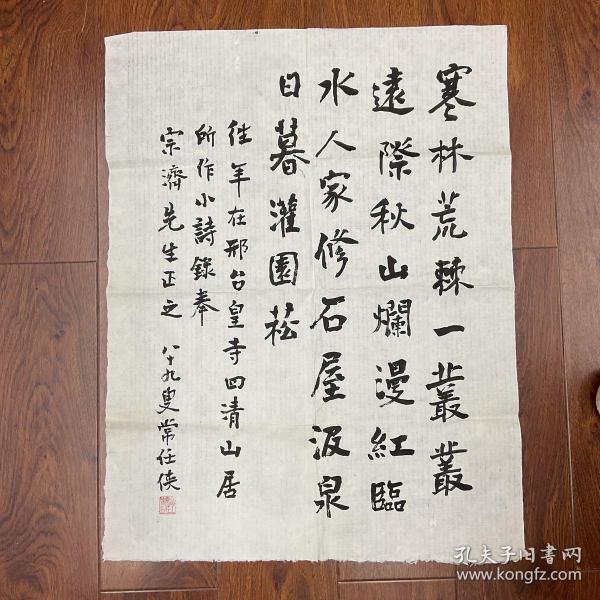 寒林荒棘一叢叢
遠際秋山爛漫紅臨
水人家修石屋汲泉
日暮灌園菘
往年在邢台皇寺四清山居
所作小詩錄奉
宗濟先生正之 八十九叟常任俠
孔夫子旧書网
www.kongfz.com